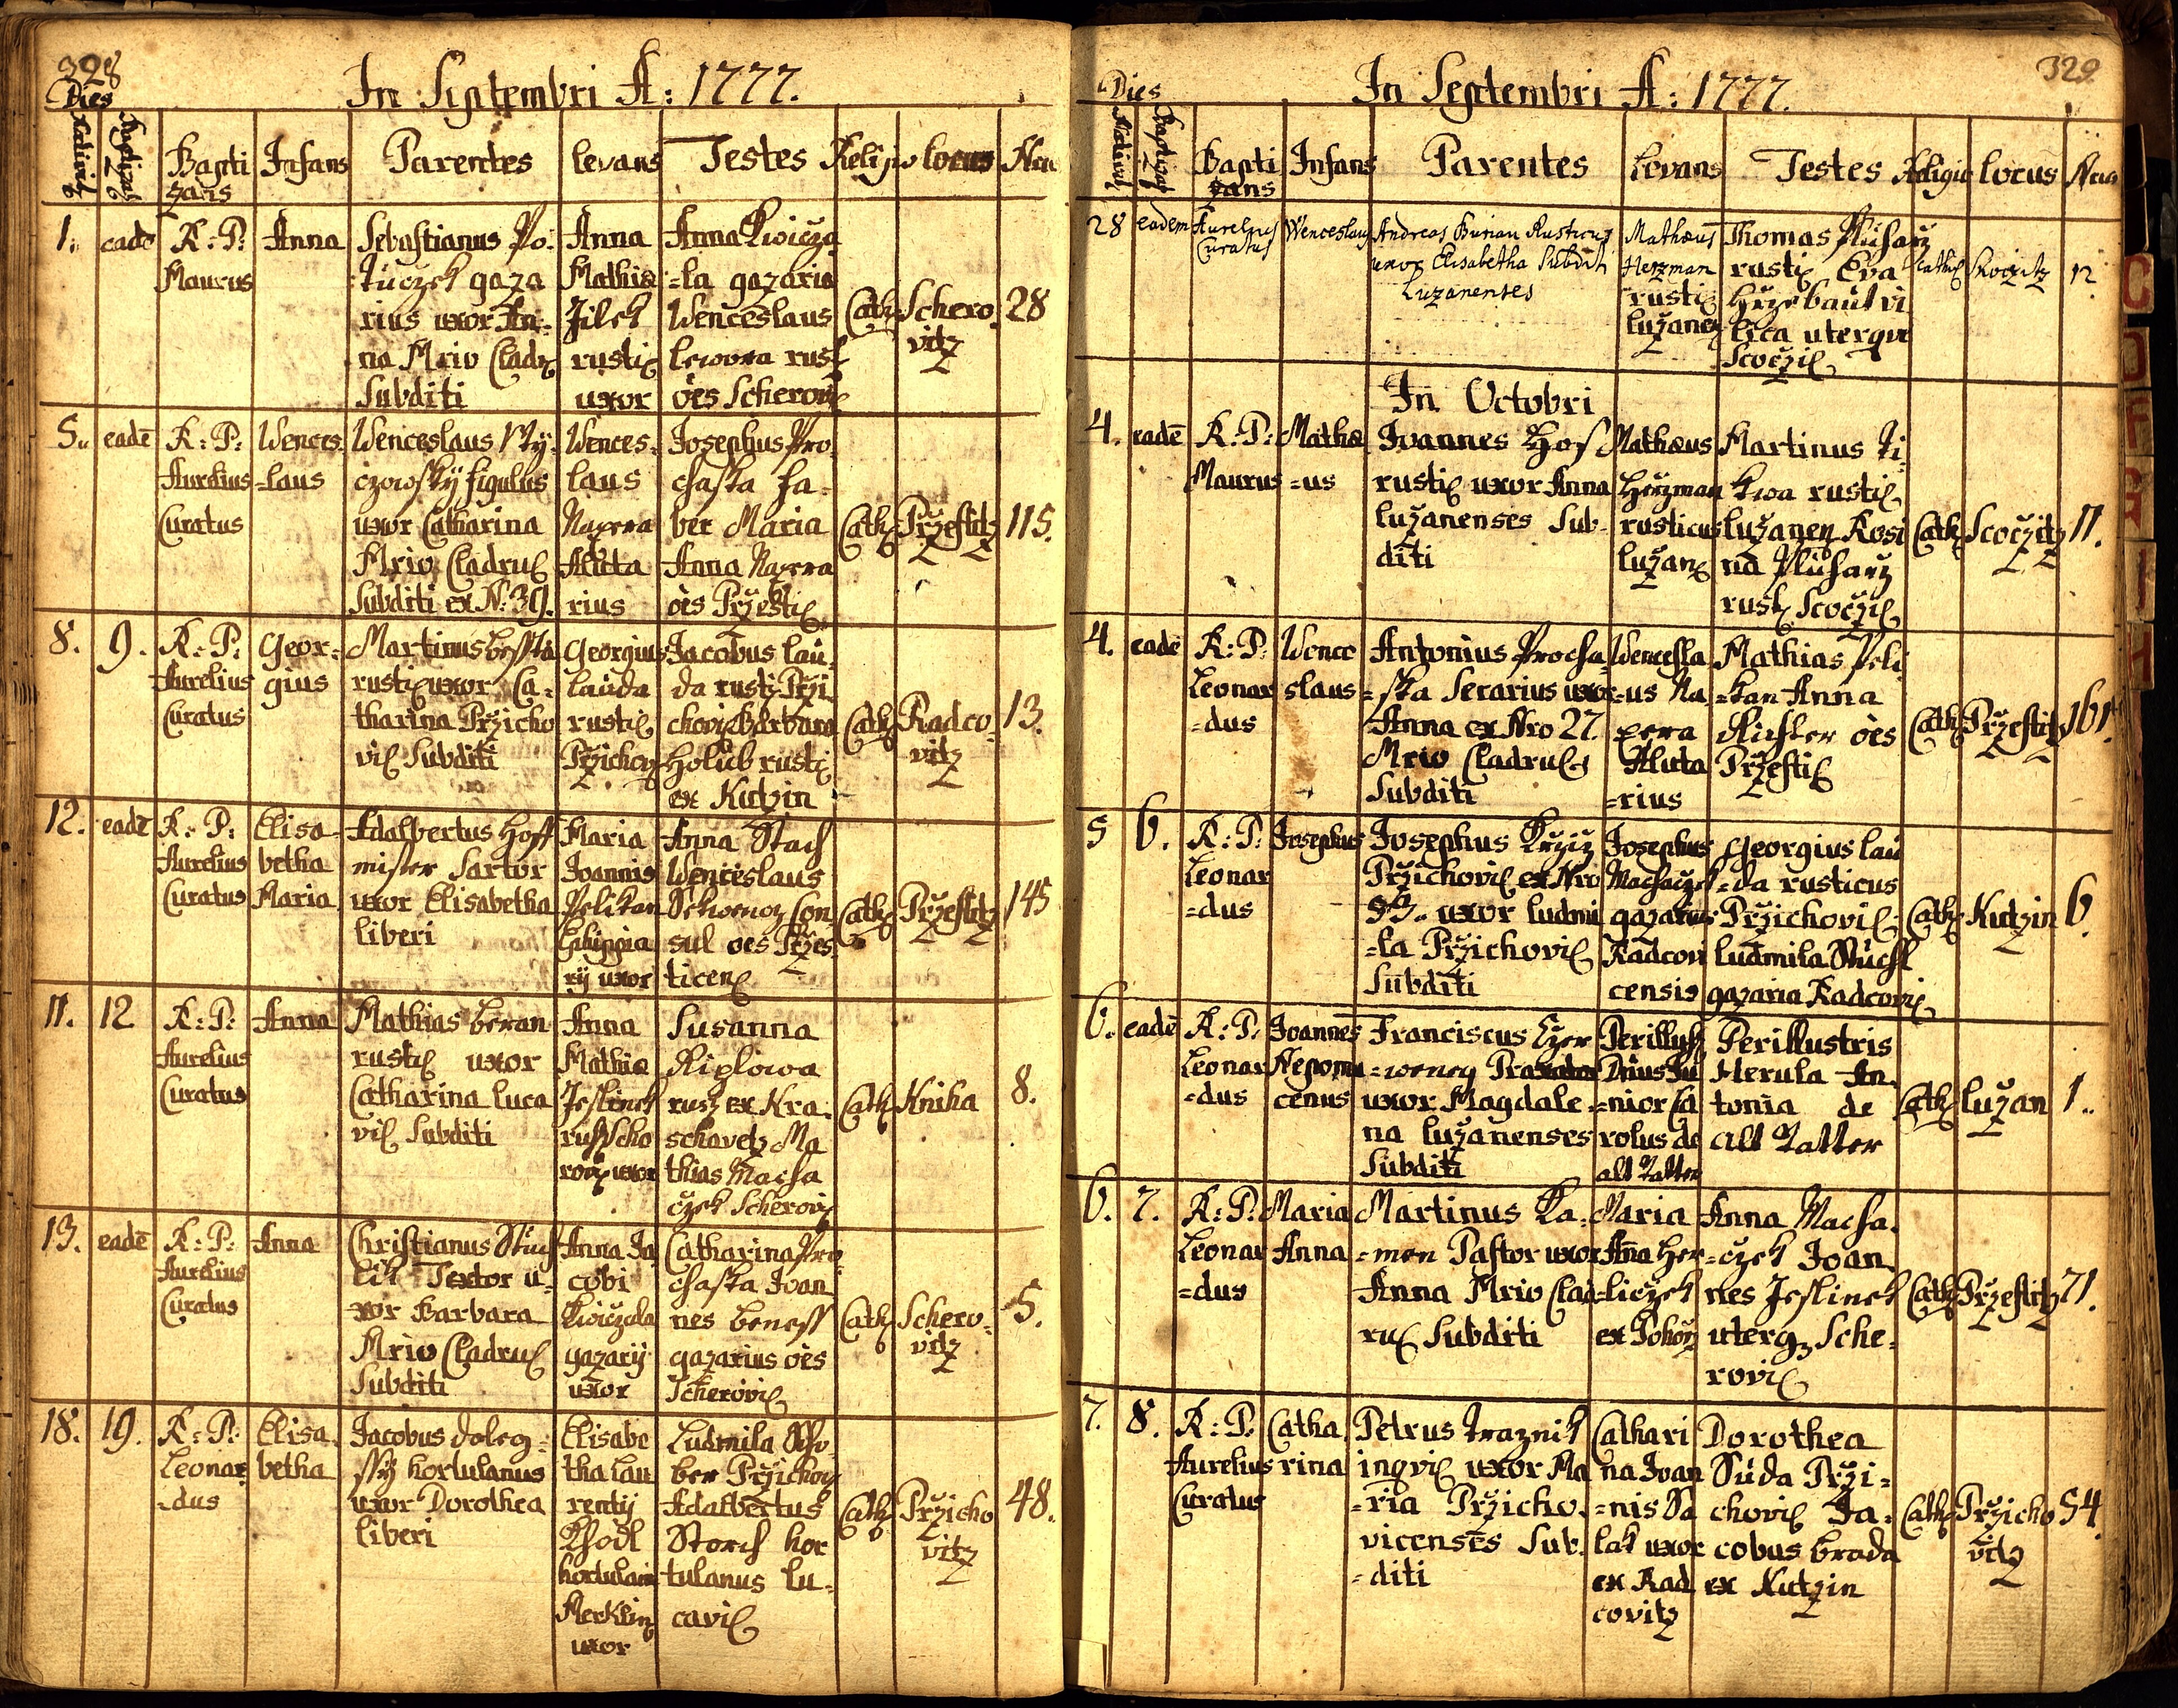 328
In Septembri A: 1777.
Dies
Nativit
Baptizat
Bapti
zans
Infans
Parentes
Levans
Testes
Religio
locus
Nru
1.
eadē
R: P:
Maurus
Anna
Sebastianus Po-
rius uxor An-
na Mrio Cladr
Subditi
Anna
Mathiæ
Jilek
rustiç
uxor
Anna Kwicza
=la gazaria
Wenceslaus
oēs Scherovi
Cath
Schero
vitz
28
5.
eadē
R: P:
Aurelius
Curatus
Wences
=laus
Wenceslaus
figulus
uxor Catharina
Mrio Cladruç
Subditi ex N: 39.
Wences-
laus
Napera
Aluta
rius
Josephus Pro
chaska fa-
ber Maria
Anna Napera
oēs Przestiç
Cath
Przestitz
115.
8.
9.
R: P:
Aurelius
Curatus
Geor-
gius
Martinus
rustiç uxor Ca-
tharina Przicho
viç Subditi
Georgius
Lauda
rustiç
Przichov
Jacobus Lau-
da rustiç Przi
choviç Barbara
Holub rusti
ex Kutzin
Cath
Radco-
vitz
13.
12.
eadē
R: P:
Aurelius
Curatus
Elisa-
betha
Maria
Adalbertus Hoff
mister Sartor
uxor Elisabetha
liberi
Maria
Joannis
Pelikan
uxor
Anna Stach
Wenceslaus
Con
sul oēs Przes
ticenç
Cath
Przestitz
145
11.
12
R: P:
Aurelius
Curatus
Anna
Mathias Beran
rustiç uxor
Catharina Luca
viç Subditi
Anna
Mathiæ
Jeslinek
uxor
Susanna
Riplowa
rust ex Kra-
schovetz Ma
thias Macha
czek Scherovi
Cath
Kniha
8.
13.
eadē
R: P:
Aurelius
Curatus
Anna
Christianus Stuch
lik Textor u-
xor Barbara
Mrio Cladruç
Subditi
Anna Ja
cobi
Kwiczala
gazarij
uxor
Catharina Pro
chaska Joan
nes Beness
gazarius oēs
Scheroviç
Cath
Schero-
vitz
5.
18.
19.
R: P:
Leonar
=dus
Elisa
betha
Jacobus Doleg-
ssy hortulanus
uxor Dorothea
liberi
Elisabe
tha Lau
rentij
Khodl
hortulani
Merklin
uxor
Ludmila
ber Przichov
Adalbertus
Storch hor
tulanus Lu-
caviç
Cath
Przicho
vitz
48.
329
In Septembri A: 1777.
Dies
Nativit
Baptizat
Bapti
zans
Infans
Parentes
Levans
Testes
Religio
locus
Nru
28
eadem
Aurelius
Curatus
Wenceslaus
Andreas Burian Rusticus
uxor Elisabetha Subditi
Luzanenses
Mathæus
Herzman
rustiç
Luzanen
Thomas Pluharz
rustiç Eva
utergue
Scocziç
Cath
Skocz̆itz
12
In Octobri
4.
eadē
R: P:
Maurus
Mathæ
=us
Joannes Hos
rustiç uxor Anna
Luz̆anenses Sub-
diti
Mathæus
Herzman
rusticus
Luz̆anç
Martinus Ti-
kwa rustiç
Luz̆anen Rosi
na Pluharz
rust Scocziç
Cath
Scoczitz
11.
4.
eadē
R: P:
Leonar
=dus
Wence
slaus
Antonius Procha-
=ska Serarius uxor
Anna ex Nro 27.
Mrio Cladruç
Subditi
Wencesla
=us Na
pera
Aluta
=rius
Mathias Peli
=kan Anna
Richter oēs
Przestiç
Cath
Przestitz
161.
5
6.
R: P:
Leonar
=dus
Josephus
Josephus Krziz
Przichoviç ex Nro
53. uxor Ludmi
=la Przichoviç
Subditi
Josephus
Machaczek
gazarius
Radcovi
censis
Georgius Lau
=da rusticus
Przichoviç
Ludmila Stuchl
gazaria Radcoviç
Cath
Kutzin
6.
6.
eadē
R: P:
Leonar
=dus
Joannes
Nepomu
cenus
Franciscus Czer
=weney
uxor Magdale-
na Luzanenses
Subditi
Perillust
Dnus Ju
=nior Ca
rolus de
alt Vatter
Perillustris
Herula An-
tonia de
alt Vatter
Cath
Luz̆an
1.
6.
7.
R: P:
Leonar
=dus
Maria
Anna
Martinus Ka-
=men Pastor uxor
Anna Mrio Clad
ruç Subditi
Maria
Añna Her
=liczek
Anna Macha-
=czek Joan
nes Jeslinek
uterqz Sche-
roviç
Cath
Przestitz
71.
7.
8.
R: P:
Aurelius
Curatus
Catha
rina
Petrus Traznik
inqviç uxor Ma
=ria Przicho-
vicenses Sub-
=diti
Cathari
na Joan
=nis Sa
lak uxor
ex Rad
covitz
Dorothea
Suda Przi-
choviç Ja-
cobus Brada
ex Kutzin
Cath
Przicho
vitz
54.